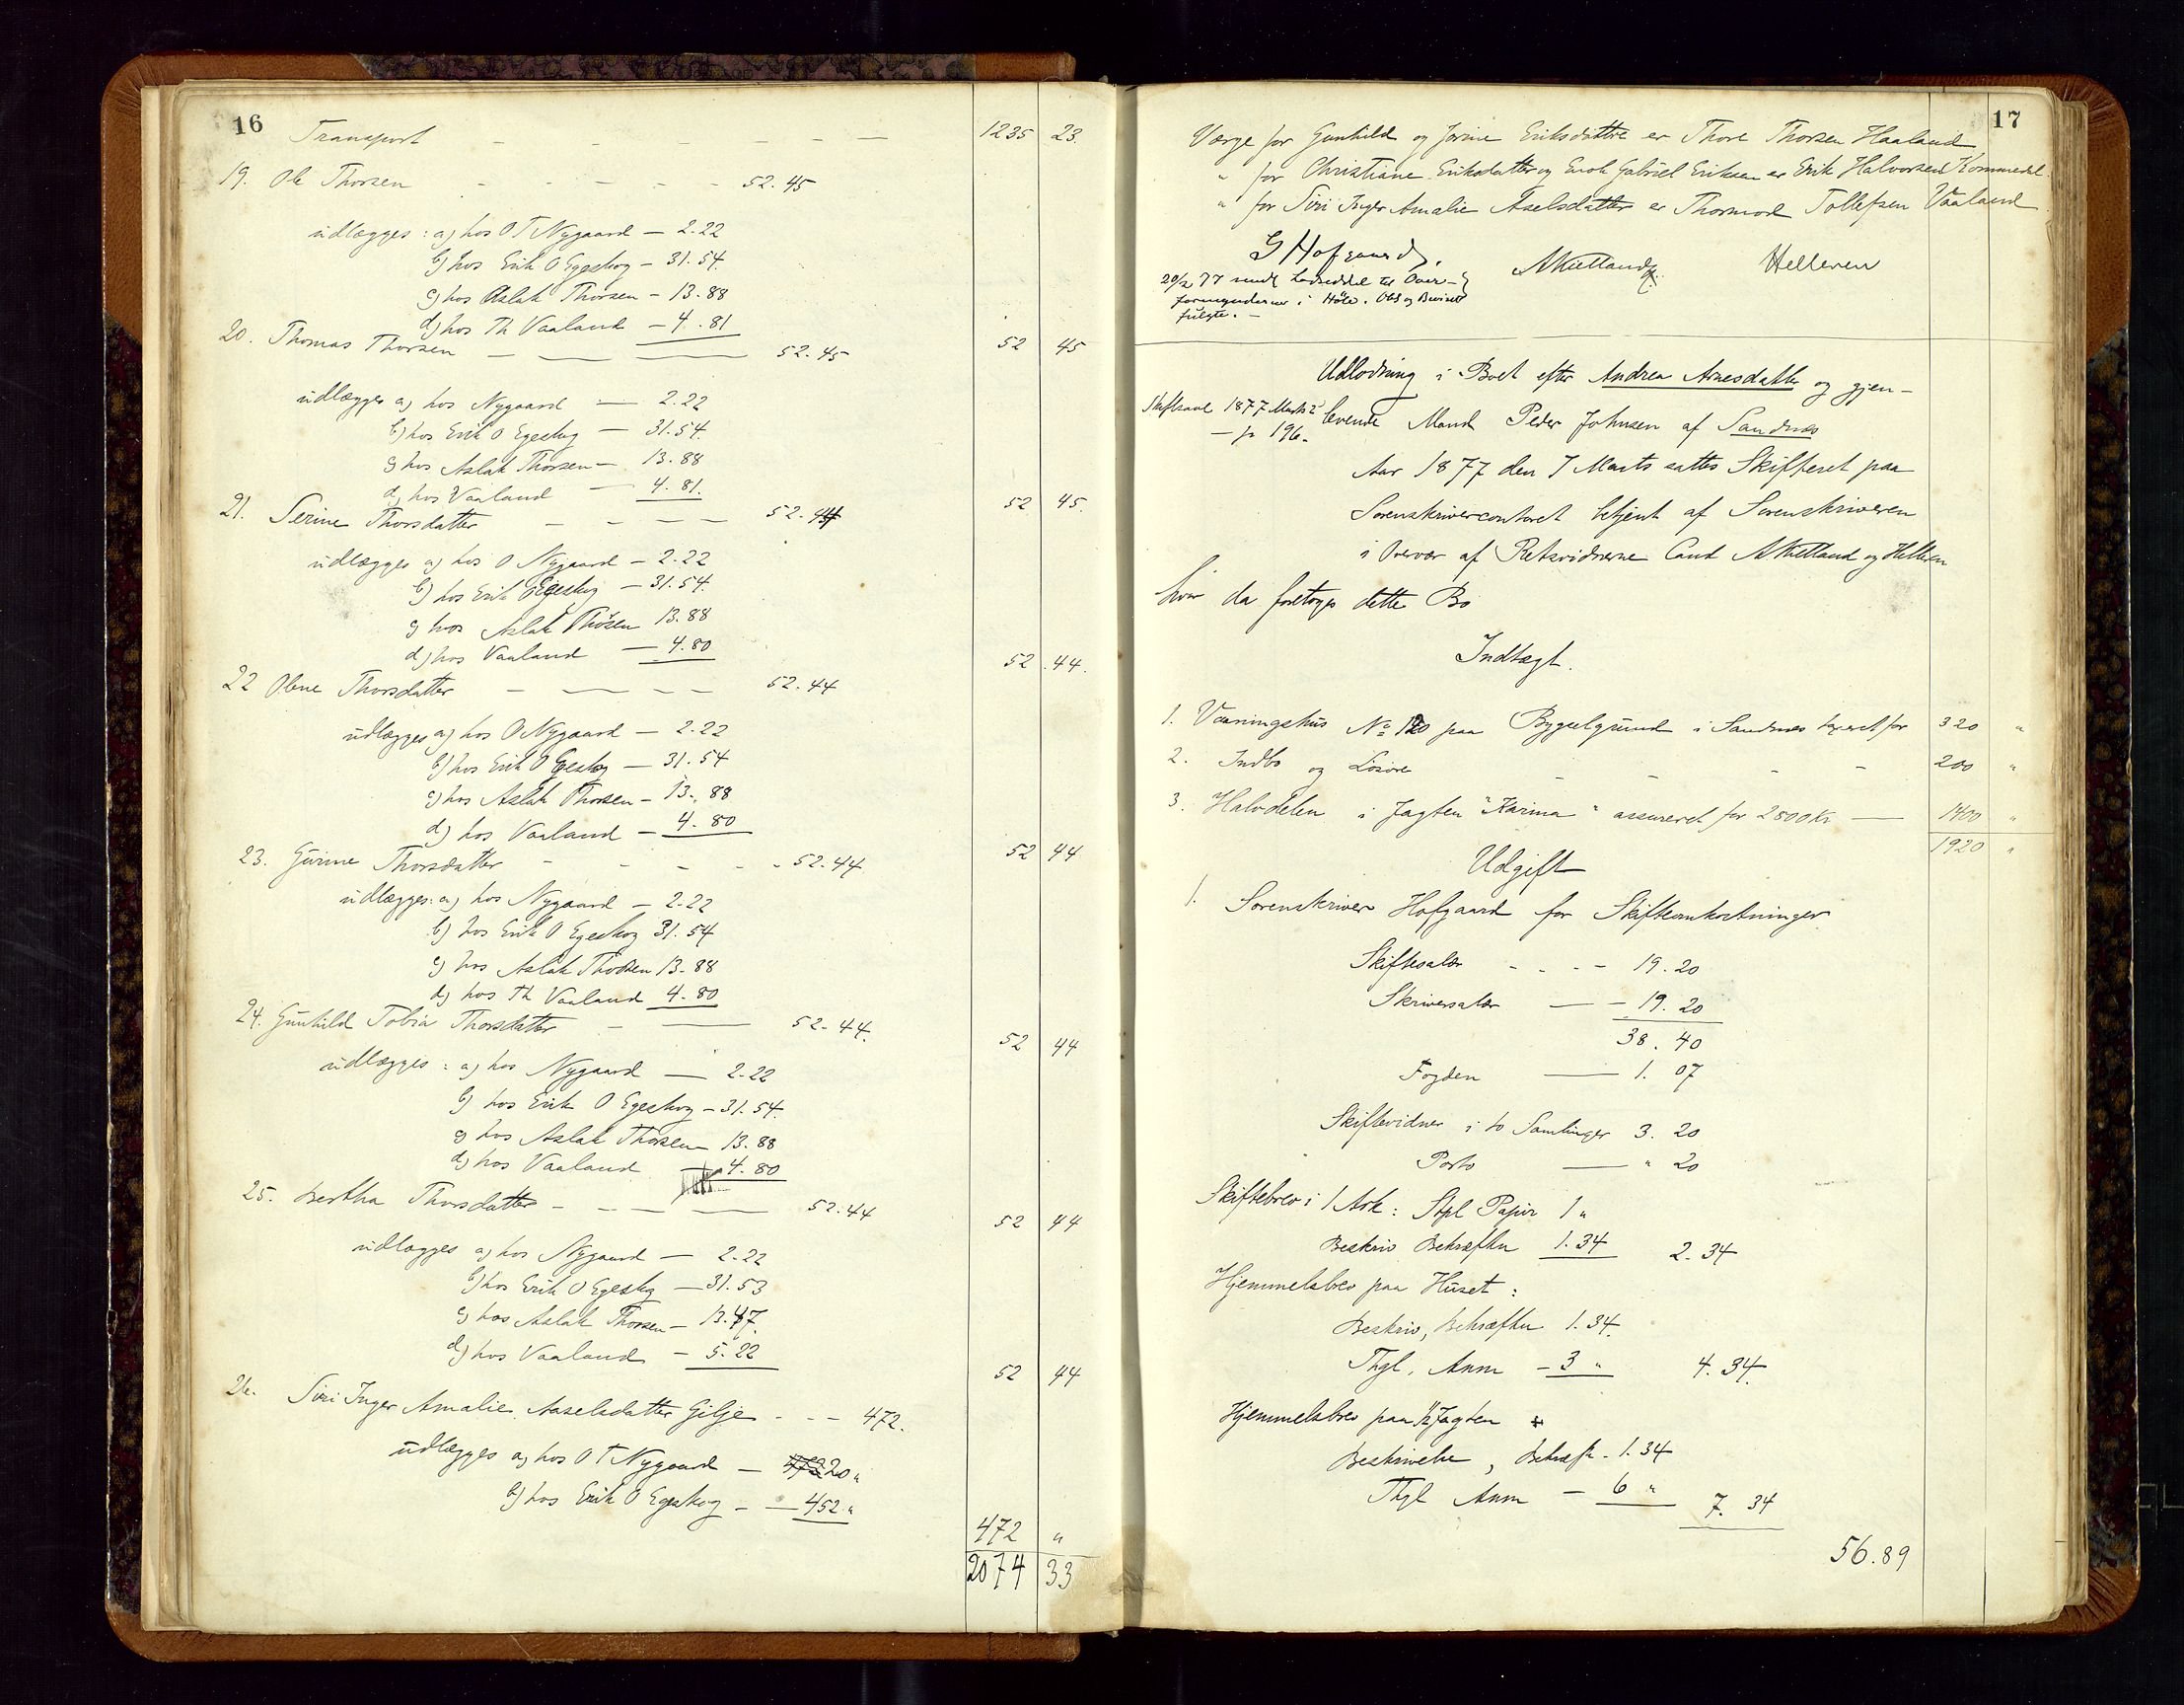 16
Transport - - - - - 1235 23.
19. Ole Thorsen - - - - - 52.45
udlægges: a) hos O T Nygaard - 2.22
b) hos Erik O Egeskog - 31.54.
c) hos Aslak Thorsen - 13.88
d) hos Th Vaaland - 4.81
52 45
20. Thomas Thorsen - - - 52.45
udlægges a) hos Nygaard - 2.22
b) hos Erik O Egeskog - 31.54.
c) hos Aslak Thorsen - 13.88
d) hos Vaaland - 4.81.
52 45.
21. Serine Thorsdatter - - - - 52.44
udlægges a) hos O Nygaard - 2.22
b) hos Erik O Egeskog - 31.54.
c) hos Aslak Thorsen 13.88
d) hos Vaaland - 4.80
52 44.
22 Olene Thorsdatter - - - - 52.44
udlægges a) hos O Nygaard - 2.22
b) hos Erik O Egeskog - 31.54
c) hos Aslak Thorsen - 13.88
d) hos Vaaland - 4.80
52 44
23. Gurine Thorsdatter - - - - - 52.44
udlægges: a) hos Nygaard - 2.22
b) hos Erik O Egeskog 31.54
c) hos Aslak Thorsen 13.88
d) hos Th Vaaland 4.80
52 44
24. Gunhild Tobia Thorsdatter - - 52.44.
udlægges: a) hos Nygaard - 2.22
b) hos Erik O Egeskog - 31.54.
c) hos Aslak Thorsen - 13.88
d) hos Vaaland - 4.80
52 44
25. Bertha Thorsdatter - - - - 52.44
udlægges a) hos Nygaard - 2.22
b) hos Erik O Egeskog - 31.53
c) hos Aslak Thorsen - 13.47.
d) hos Vaaland - 5.22
52 44
26. Siri Inger Amalie Aaselsdatter Gilje - - - 472.
udlægges a) hos O T Nygaard - 20 "
b) hos Erik O Egeskog - - 452 "
472 "
2074 33
17
Værge for Gunhild og Jorine Eriksdøttre er Thore Thorsen Haaland
" for Christiane Eriksdatter og Enok Gabriel Eriksen er Erik Halvorsen Kommedal.
" for Siri Inger Amalie Aaselsdatter er Thormod Tollefsen Vaaland.
G Hofgaard. AKielland Helleren
20/2 77 sendt Lodseddel til Over-
formynderne i Høle. Obl og Beviset
fulgte. -
Udlodning i Boet efter Andrea Arnesdatter og gjen-
Skiftsaml 1877 Marts 2 levende Mand Peder Johnsen af Sandnes
- fo 196.
Aar 1877 den 7 Marts sattes Skifteret paa
Sorenskrivercontoret betjent af Sorenskriveren
i Overvær af Retsvidnerne Cand AKielland og Helleren
hvor da foretoges dette Bo
Indtægt.
1. Vaaningshus No 120 paa Bygselgrund i Sandnes taxeret for 320 "
2. Indbo og Løsøre - - - - 200 "
3. Halvdelen i Jagten "Karina" assureret for 2800 Kr - 1400 "
1920 "
Udgift
1. Sorenskriver Hofgaard for Skifteomkostninger
Skiftesalær - - - - 19.20
Skriversalær - - 19.20
38.40
Fogden - 1.07
Skiftevidner i to Samlinger 3.20
Porto - " 20
Skiftebrev i 1 Ark: Stpl Papir 1 "
Beskriv Bekræftn 1.34 2.34
Hjemmelsbrev paa Huset:
Beskriv, Bekræftn 1.34.
Thgl. Anm - 3 " 4.34.
Hjemmelsbrev paa 1/2 Jagten
Beskrivelse, Bekræft. 1.34
Thgl Anm - 6 " 7.34
56.89